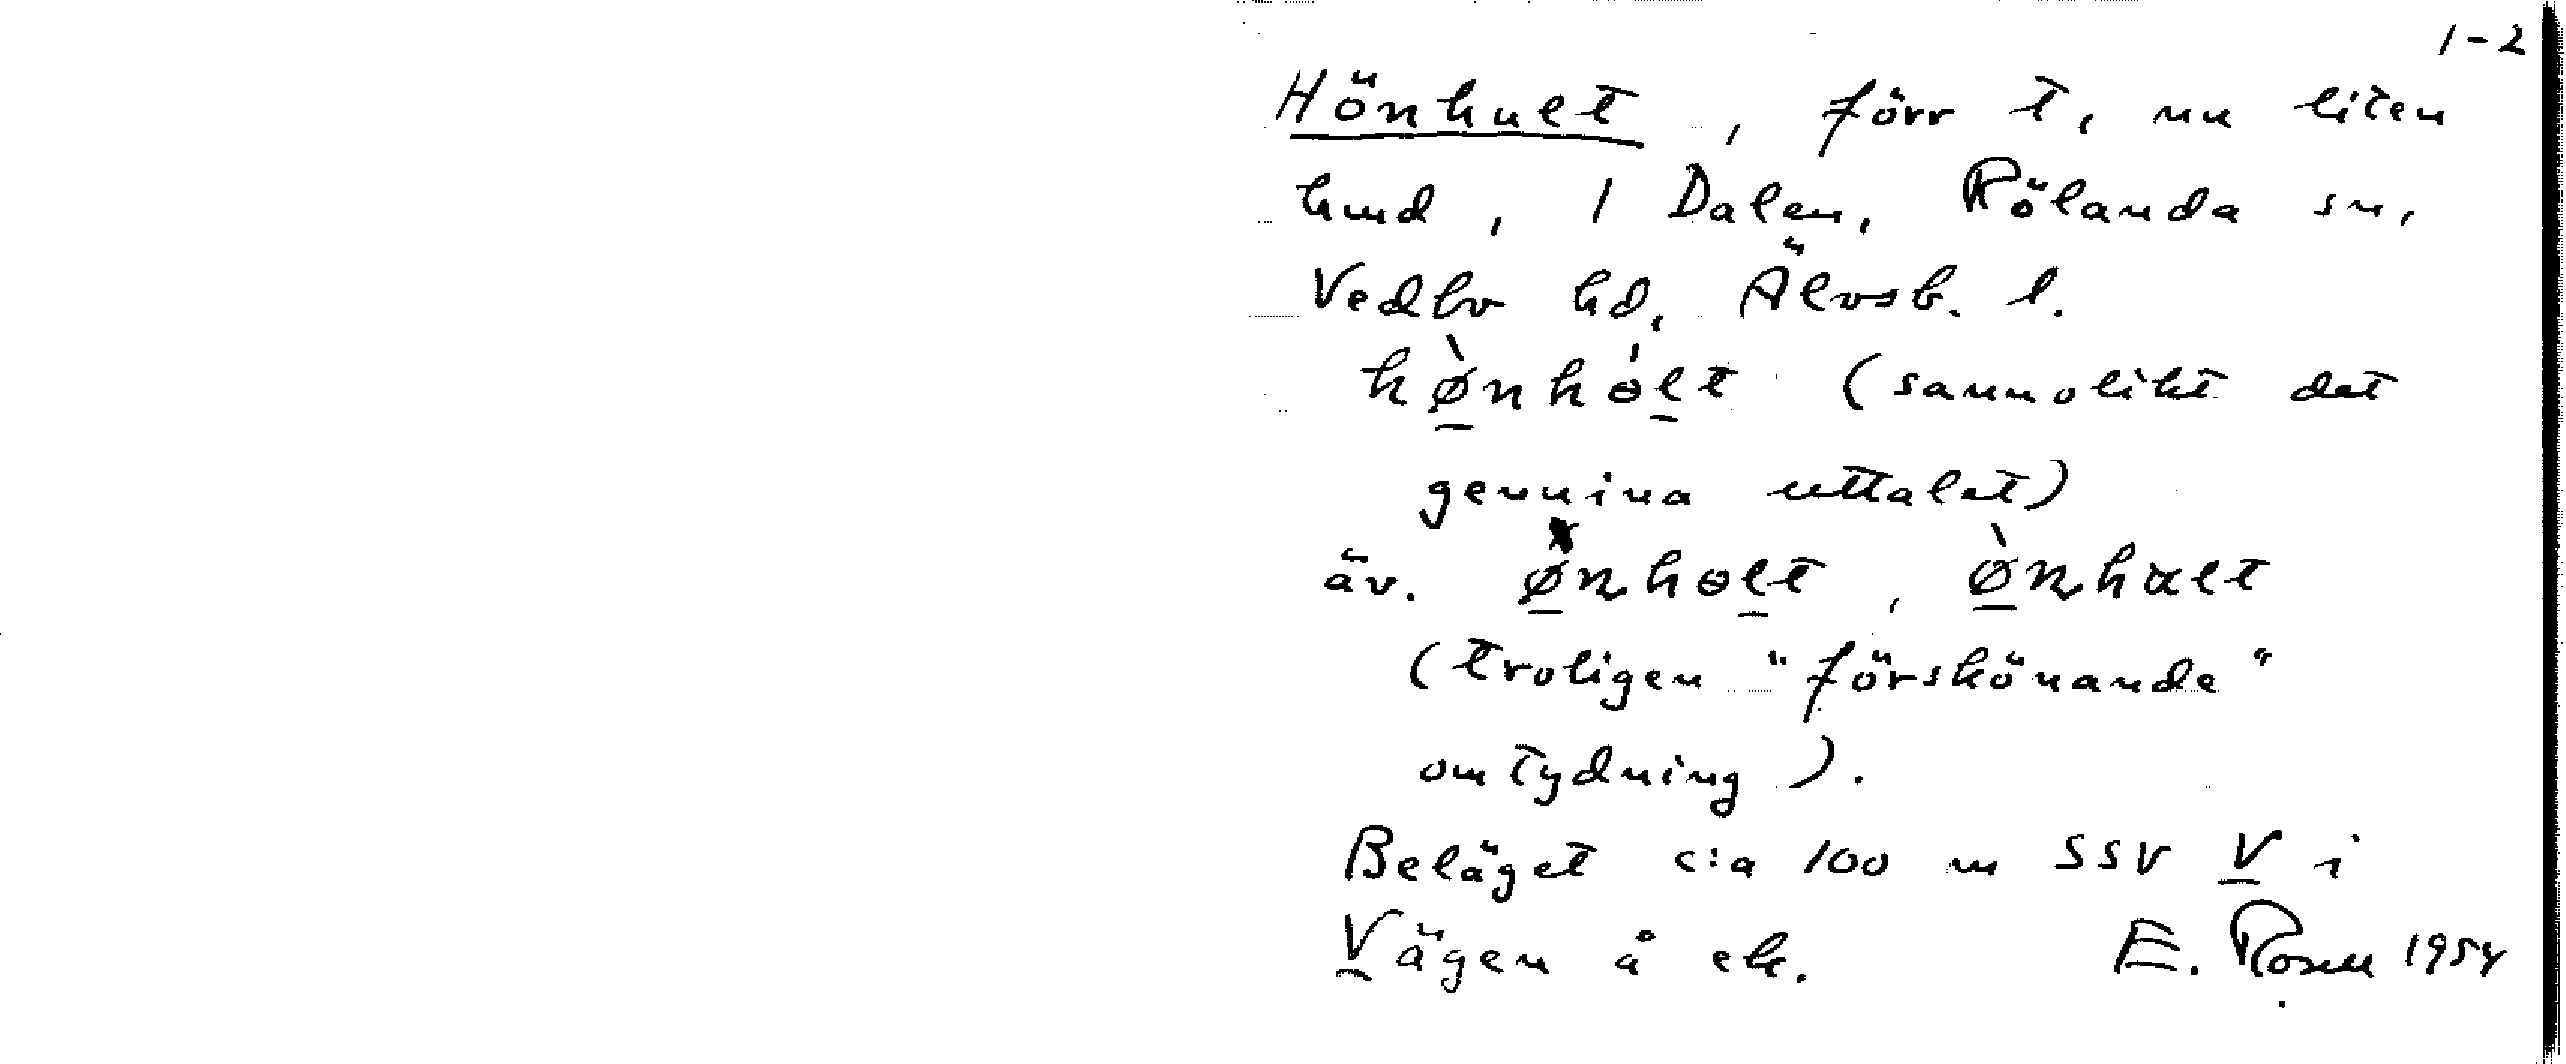 1-2
Hönhult, förr t, nu liten
hmd, 1 Dalen, Rölanda sn,
Vedbo hd, Älvsb. l.
hø̀nhɵ́lt (sannolikt det
genuina uttalet)
äv. ø̀nhɵlt, ø̀nhαlt
(troligen "förskönande"
omtydning).
Beläget c:a 100 m SSV V i
Vägen å ek. E. Rosell 1954